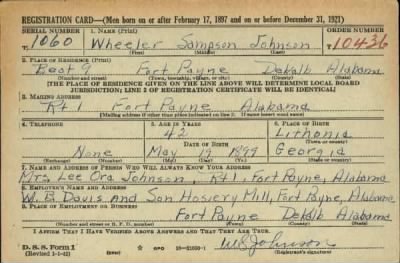 REGISTRATION CARD—(Men born on or after February 17, 1897 and on or before December 31, 1921)
SERIAL NUMBER 1. NAME (Print) ORDER NUMBER
1060 Wheeler Sampson Johnson 10436
(First) (Middle) (Last)
2. PLACE OF RESIDENCE (Print)
Beat 9 Fort Payne DeKalb Alabama
(Number and street) (Town, township, village, or city) (County) (State)
[THE PLACE OF RESIDENCE GIVEN ON THE LINE ABOVE WILL DETERMINE LOCAL BOARD
JURISDICTION; LINE 2 OF REGISTRATION CERTIFICATE WILL BE IDENTICAL]
3. MAILING ADDRESS
Rt 1 Fort Payne Alabama
[Mailing address if other than place indicated on line 2. If same insert word same]
4. TELEPHONE 5. AGE IN YEARS 6. PLACE OF BIRTH
42 Lithonia
DATE OF BIRTH (Town or county)
None May 19 1899 Georgia
(Exchange) (Number) (Mo.) (Day) (Yr.) (State or country)
7. NAME AND ADDRESS OF PERSON WHO WILL ALWAYS KNOW YOUR ADDRESS
Mrs Lee Ora Johnson, Rt 1, Fort Payne, Alabama
8. EMPLOYER'S NAME AND ADDRESS
W. B. Davis and Son Hosiery Mill, Fort Payne, Alabama
9. PLACE OF EMPLOYMENT OR BUSINESS
Fort Payne DeKalb Alabama
(Number and street or R. F. D. number) (Town) (County) (State)
I AFFIRM THAT I HAVE VERIFIED ABOVE ANSWERS AND THAT THEY ARE TRUE.
D. S. S. Form 1
(Revised 1-1-42) GPO 16—21630-1 WSJohnson
(Registrant's signature)